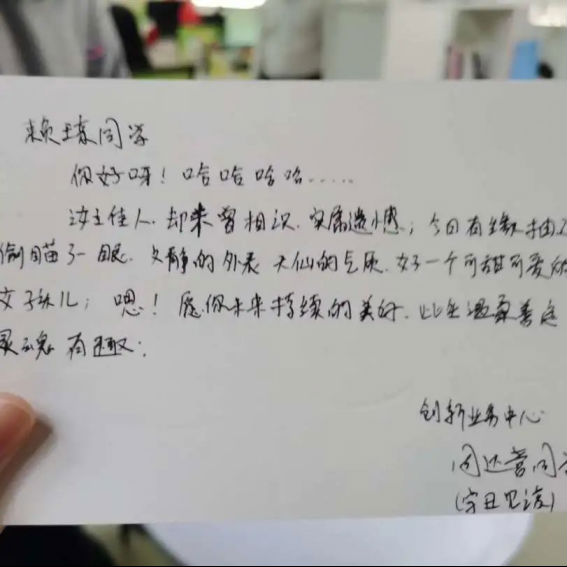 赖 同学
你好呀！哈哈哈哈.....
佳人，却未曾相识，实属遗憾；今日有缘抽
偷瞄了一眼，文静的外表 天仙的气质，好一个可甜可爱的
女孩儿；嗯！愿你未来持续的美好，此生温柔善良
灵魂有趣；
创新业务中心
同
(字丑见谅)